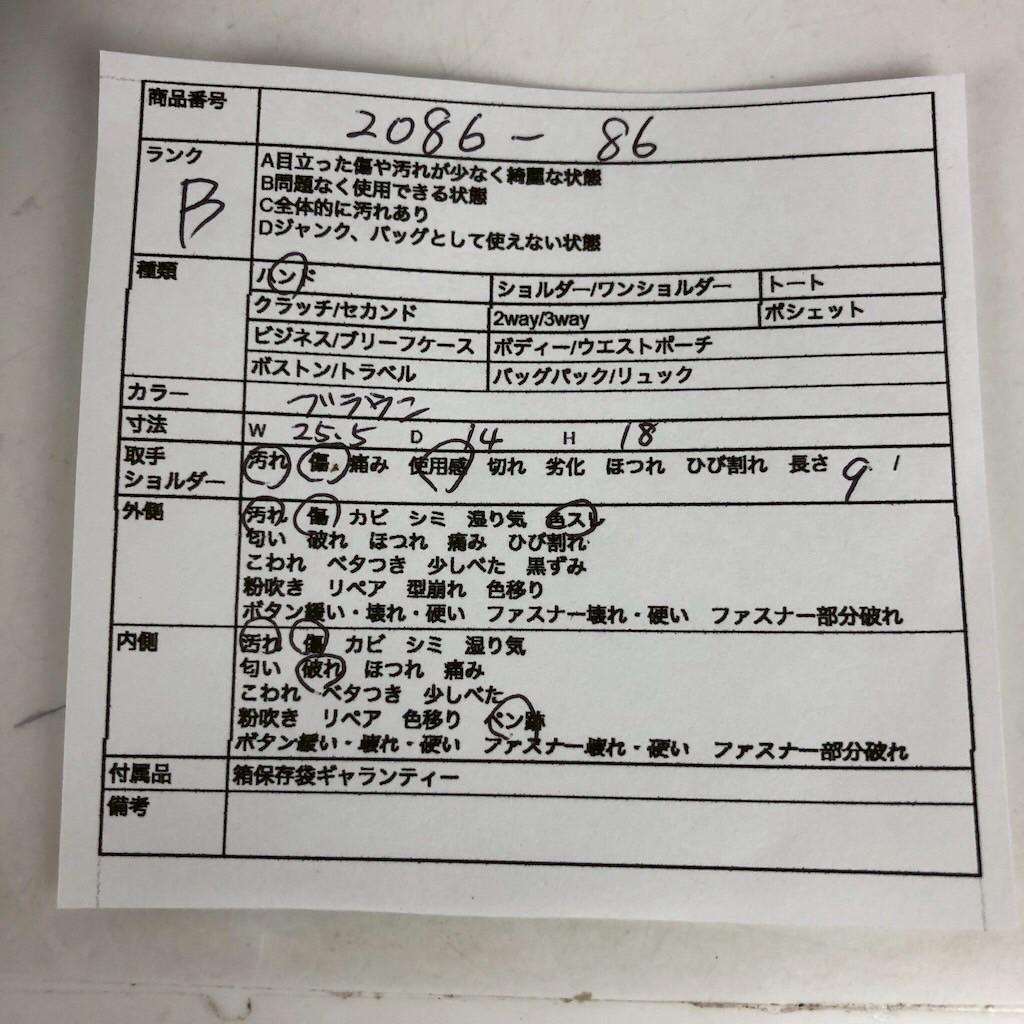 商品番号 2086-86
ランク B
A目立った傷や汚れが少なく綺麗な状態
B問題なく使用できる状態
C全体的に汚れあり
Dジャンク、バッグとして使えない状態
種類 ハンド ショルダー/ワンショルダー トート
クラッチ/セカンド 2way/3way ポシェット
ビジネス/ブリーフケース ボディー/ウエストポーチ
ボストン/トラベル バッグパック/リュック
カラー ブラウン
寸法 W 25.5 D 14 H 18
取手 ショルダー 汚れ 傷 痛み 使用感 切れ 劣化 ほつれ ひび割れ 長さ 9.1
外側 汚れ 傷 カビ シミ 湿り気 色スレ
匂い 破れ ほつれ 痛み ひび割れ
こわれ ベタつき 少しべた 黒ずみ
粉吹き リペア 型崩れ 色移り
ボタン緩い・壊れ・硬い ファスナー壊れ・硬い ファスナー部分破れ
内側 汚れ 傷 カビ シミ 湿り気
匂い 破れ ほつれ 痛み
こわれ ベタつき 少しべた
粉吹き リペア 色移り ペン跡
ボタン緩い・壊れ・硬い ファスナー壊れ・硬い ファスナー部分破れ
付属品 箱保存袋ギャランティー
備考